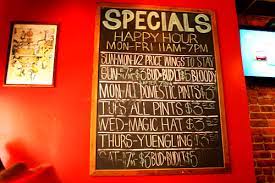 SPECIALS
HAPPY HOUR
MON-FRI 11AM-7PM
SUN-MON-1/2 PRICE WINGS TO STAY
SUN- BUD-BUDLT $ BLOODY
MON-ALL DOMESTIC PINTS $3
ALL PINTS $3
WED-MAGIC HAT $3
THURS-YUENGLING $
SAT- BUD-BUDLT $